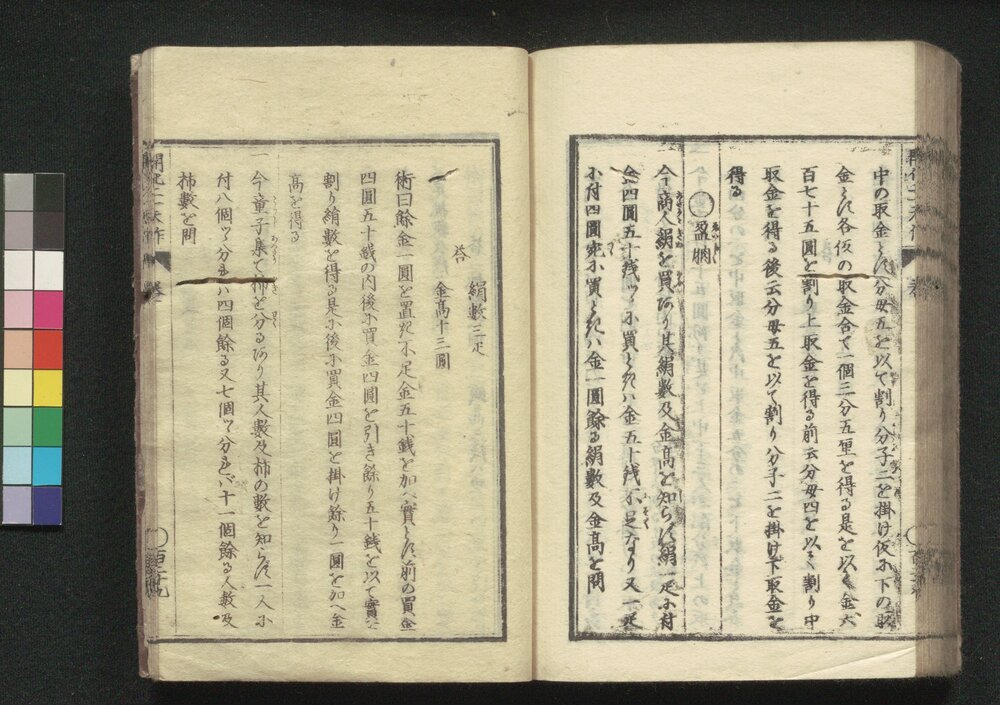 中の取金とし分母五を以て割り分子二を掛け仮に下の取
金とし各仮の取金合て一個三分五厘を得る是を以て金六
百七十五圓を割り上取金を得る前云分母四を以て割り中
取金を得る後云分母五を以て割り分子二を掛け下取金を
得る
○盈朒
今商人絹を買あり其絹數及金高を知らず絹一疋に付
金四圓五十銭ツヽに買ときハ金五十銭不足なり又一疋
に付四圓宛に買ときハ金一圓餘る絹數及金高を問
答
絹數三疋
金高十三圓
術曰餘金一圓を置き不足金五十銭を加へ實とす前の買金
四圓五十銭の内後に買金四圓を引き餘り五十銭を以て實を
割り絹數を得る是に後に買金四圓を掛け餘り一圓を加へ金
高を得る
一今童子集て柿を分るあり其人數及柿の數を知らず一人に
付八個ツヽ分れハ四個餘る又七個ツヽ分れバ十一個餘る人數及
柿數を問